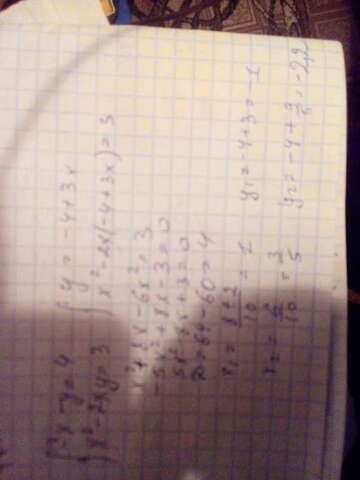 {3x-y=4 {y=-4+3x
{x²-2xy=3 {x²-2x(-4+3x)=3
x²+8x-6x²=3
-5x²+8x-3=0
5x²-8x+3=0
D=64-60=4
x₁=8+2/10=1 y₁=-4+3=-1
x₂=6/10=3/5 y₂=-4+9/5=-2,2